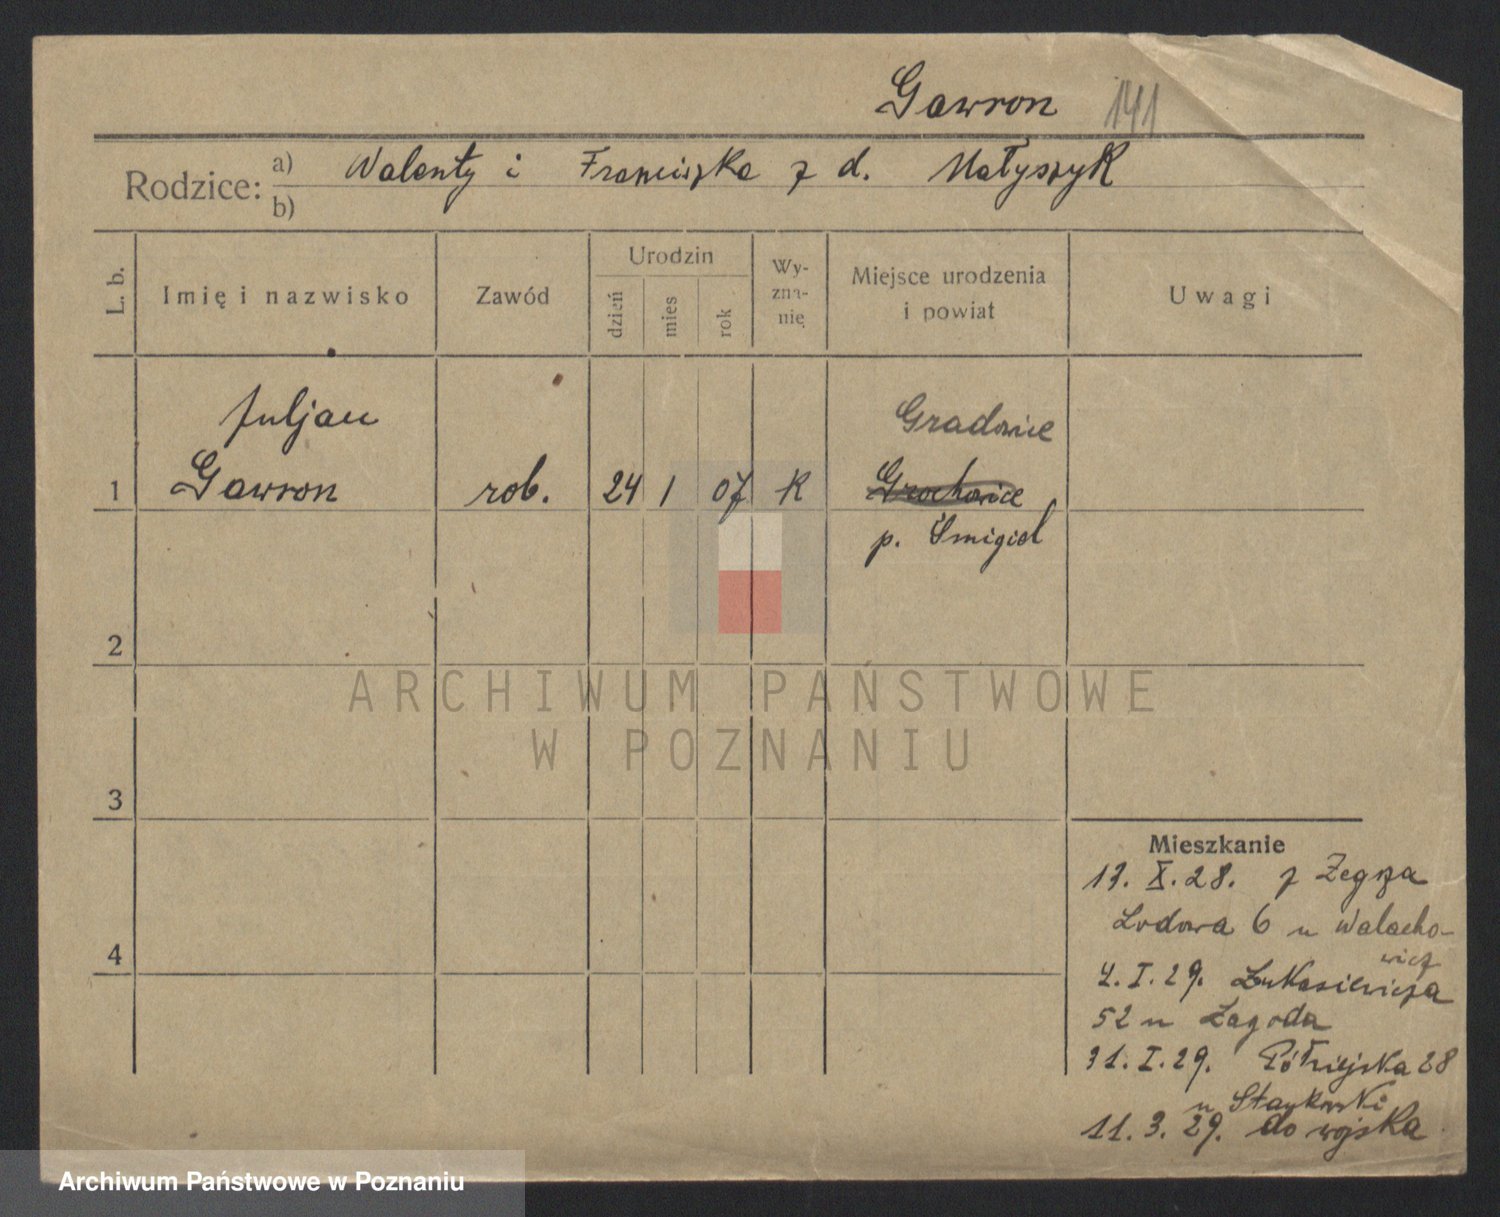 Gawron 141
Rodzice: a) Walenty i Franciszka z d. Matyszyk
b)
L. b. Imię i nazwisko Zawód Urodzin dzień mies rok Wy-zna-nię Miejsce urodzenia i powiat Uwagi
Juljan Gradowice
1 Gawron rob. 24 1 07 K Grochowice
p. Śmigiel
2
ARCHIWUM PAŃSTWOWE
W POZNANIU
3
Mieszkanie
z
Lodowa 6 u Walacho-
wicz
4
I.29. Łukasiewicza
52 u Zagoda
31.I.29. Półwiejska 28
u
11.3.29. do wojska
Archiwum Państwowe w Poznaniu